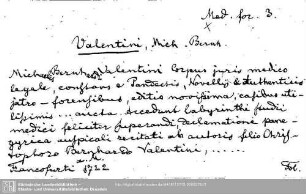 Med. for. 3.
Valentini, Mich. Bernh.
Michael Bernhard Valentini Corpus juris medico
legale, constans e Pandectis, Novellis & Authenticis
jatro-forensibus, editio novissima, casibus uti-
lissimis ... aucta. Accedunt labyrinthi fredi
medici feliciter superandi Declamatione pane-
gyrica auspicali recitati ab autoris filio Chris-
tophoro Bernhardo Valentini, .....
Francofurti 1722
Fol.